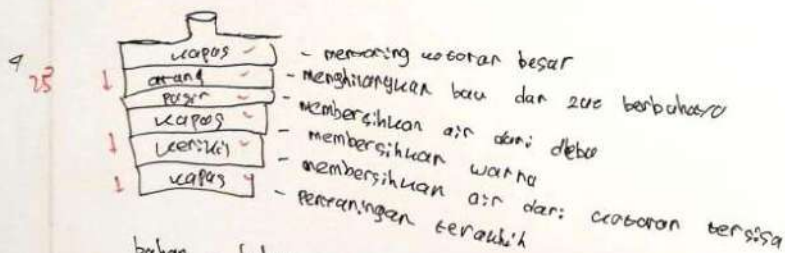 4
25
kapas - menyaring kotoran besar
arang - menghilangkan bau dan zat berbahaya
pasir - membersihkan air dari debu
kapas - membersihkan warna
kerikil - membersihkan air dari kotoran tersisa
kapas - penyaringan terakhir
bahan